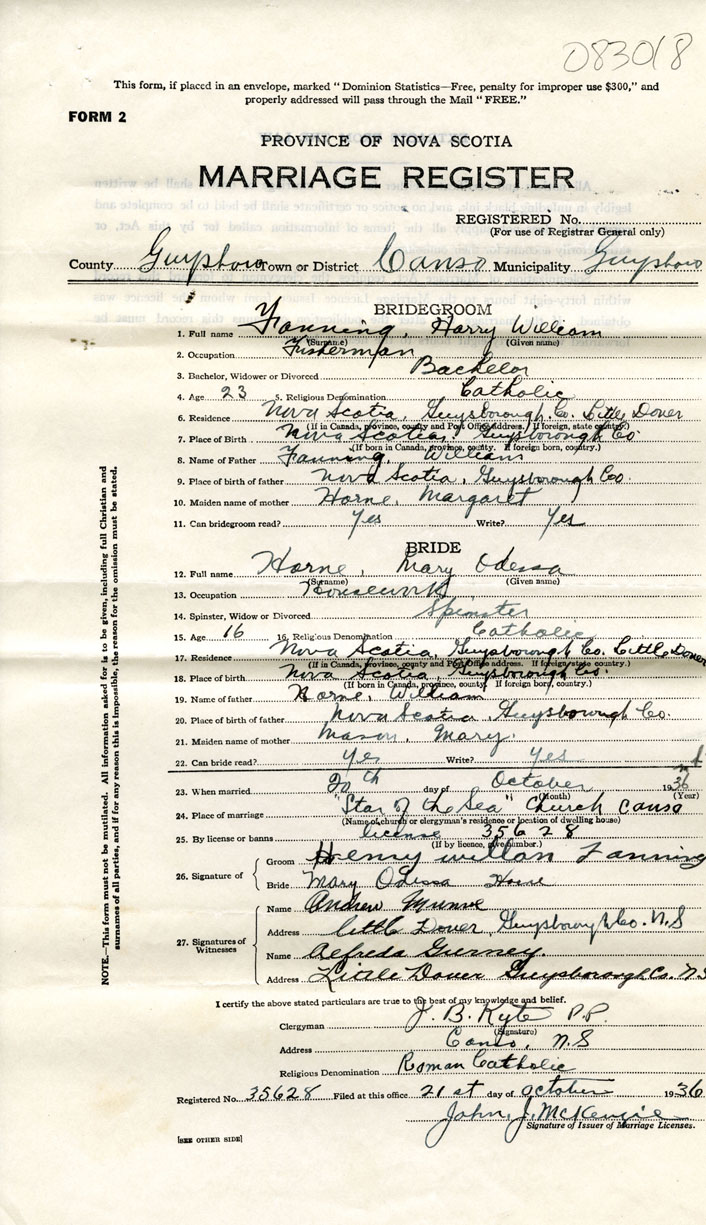 083018
This form, if placed in an envelope, marked "Dominion Statistics—Free, penalty for improper use $300," and
properly addressed will pass through the Mail "FREE."
FORM 2
PROVINCE OF NOVA SCOTIA
MARRIAGE REGISTER
REGISTERED No.
(For use of Registrar General only)
County Guysboro Town or District Canso Municipality Guysboro
BRIDEGROOM
1. Full name Fanning, Harry William
(Surname) (Given name)
2. Occupation Fisherman
3. Bachelor, Widower or Divorced Bachelor
4. Age 23 5. Religious Denomination Catholic
6. Residence Nova Scotia, Guysborough Co. Little Dover
(If in Canada, province, county and Post Office address. If foreign, state country.)
7. Place of Birth Nova Scotia, Guysborough Co
(If born in Canada, province, county. If foreign born, country.)
8. Name of Father Fanning, William
9. Place of birth of father Nova Scotia, Guysborough Co.
10. Maiden name of mother Horne, Margaret
11. Can bridegroom read? Yes Write? Yes
BRIDE
12. Full name Horne, Mary Odessa
(Surname) (Given name)
13. Occupation Housework
14. Spinster, Widow or Divorced Spinster
15. Age 16 16. Religious Denomination Catholic
17. Residence Nova Scotia, Guysborough Co. Little Dover
(If in Canada, province, county and Post Office address. If foreign, state country.)
18. Place of birth Nova Scotia, Guysborough Co.
(If born in Canada, province, county. If foreign born, country.)
19. Name of father Horne, William
20. Place of birth of father Nova Scotia, Guysborough Co.
21. Maiden name of mother Mason, Mary.
22. Can bride read? Yes Write? Yes
23. When married 20th day of October 1936
(Month) (Year)
24. Place of marriage "Star of the Sea" Church Canso
(Name of church or clergyman's residence or location of dwelling house)
25. By license or banns license 35628
(If by licence, give number.)
26. Signature of Groom Henry willan Fanning
Bride Mary Odessa Horne
27. Signatures of Witnesses
Name Andrew Munroe
Address Little Dover, Guysboro Co. N.S
Name Alfreda Gurney.
Address Little Dover Guysborough Co. N.S
I certify the above stated particulars are true to the best of my knowledge and belief.
Clergyman J. B. Kyte P.P.
(Signature)
Address Canso, N.S
Religious Denomination Roman Catholic
Registered No. 35628 Filed at this office 21 st day of October 1936
John. J. McKenzie
Signature of Issuer of Marriage Licenses.
[SEE OTHER SIDE]
NOTE.—This form must not be mutilated. All information asked for is to be given, including full Christian and
surnames of all parties, and if for any reason this is impossible, the reason for the omission must be stated.